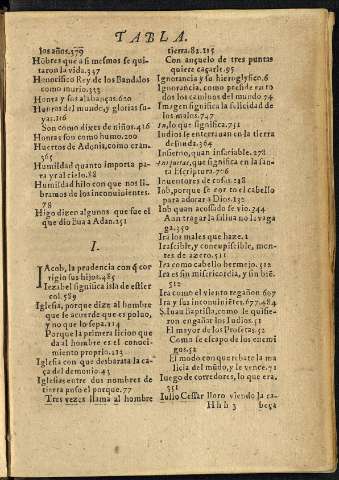 TABLA.
los años.379
Hõbres que a si mesmos se qui-
taron la vida.347
Honorifico Rey de los Bandalos
como murio.333
Honra y sus alabanças.620
Honras del mundo, y glorias su-
yas.116
Son como dixes de niños.416
Honras son como humo.200
Huertos de Adonis, como eran.
365
Humildad quanto importa pa-
ra yr al cielo.88
Humildad hilo con que nos li-
bramos de los inconuinientes.
78
Higo dizen algunos que fue el
que dio Eua a Adan.251
I.
IAcob, la prudencia con q̃ cor
rigio sus hijos.485
Iezabel significa isla de estier
col.589
Iglesia, porque dize al hombre
que se acuerde que es poluo,
y no que lo sepa.114
Porque la primera licion que
da al hombre es el conoci-
miento proprio.113
Iglesia con que desbarata la ca-
ça del demonio.43
Iglesias entre dos nombres de
tierra puso el porque.77
Tres vezes llama al hombre
tierra.82.115
Con ançuelo de tres puntas
quiere caçarle.95
Ignorancia y su hieroglyfico.6
Ignorancia, como preside en to
dos los caminos del mundo.74
Imagen significa la felicidad de
los malos.747
In, lo que significa.751
Indios se enterrauan en la tierra
desnudos.364
Infierno, quan insaciable.278
que significa en la san-
ta Escriptura.706
Inuentores de cosas.128
Iob, porque se cortò el cabello
para adorar a Dios.132
Iob quan acossado se vio.344
Aun tragar la saliua no le vaga
ga.350
Ira los males que haze.1
Irascible, y concupiscible, mon-
tes de azero.511
Ira como cabello bermejo.512
Ira es sin misericordia, y sin biẽ.
512
Ira como el viento regañon.607
Ira y sus inconuiniẽtes.677.484
S. Iuan Baptista, como le quisie-
ron engañar los Iudios.51
El mayor de los Profetas.52
Como se escapò de los enemi
gos.52
El modo con que rebate la ma
licia del mũdo, y se vence.71
Iuego de corredores, lo que era.
351
Iulio Cessar lloro viendo la ca-
Hhh 3 beça